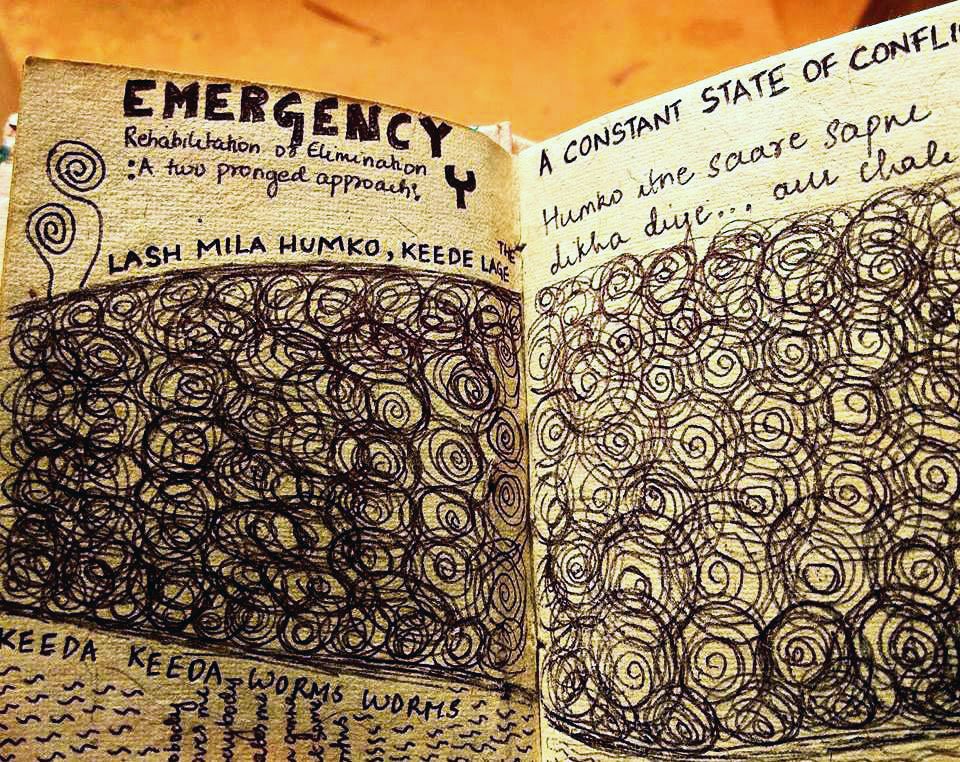 EMERGENCY
Y
Rehabilitation or Elimination
: A two pronged approach:
LASH MILA HUMKO, KEEDE LAGE THE
KEEDA KEEDA WORMS WORMS
A CONSTANT STATE OF CONFLI
Humko itne saare sapne
dikha diye... aur chale